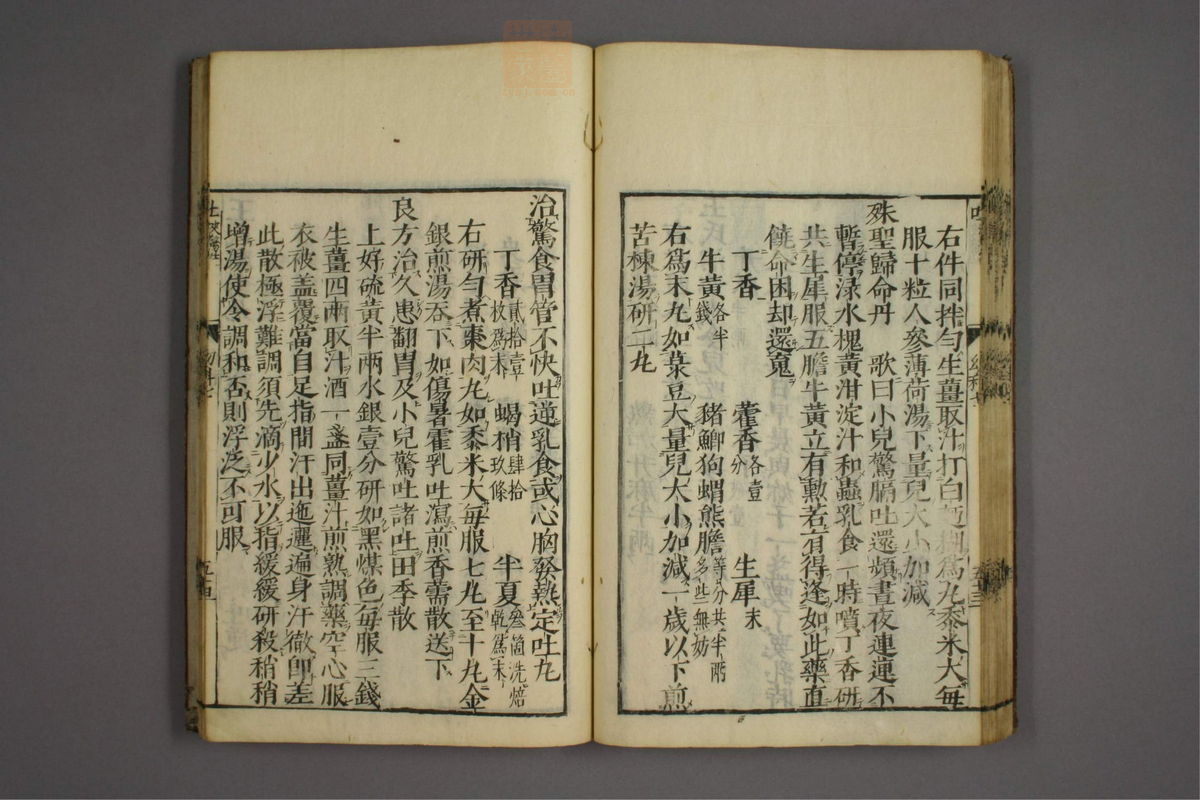 右件同拌勻生薑取汁打白麪糊爲丸黍米大每
服十粒人參薄荷湯下量兒大小加減
殊聖歸命丹 歌曰小兒驚膈吐還頻晝夜連連不
暫停淥水槐黃泔淀汁和蟲乳食一時噴丁香研
共生犀服五膽牛黃立有勳若有得逢如此藥直
饒命困却還䰟
丁香 藿香各壹分 生犀末
牛黃各半錢 豬鯽狗蝟熊膽等分共半兩多些無妨
右爲末丸如菉豆大量兒大小加減一歲以下煎
苦楝湯研二丸
治驚食胃管不快吐逆乳食或心胸發熱定吐丸
丁香貳拾壹枚爲末 蝎梢肆拾玖條 半夏叄箇洗焙乾爲末
右研勻煮棗肉丸如黍米大每服七丸至十丸金
銀煎湯吞下如傷暑霍乳吐瀉煎香薷散送下
良方治久患翻胃及小兒驚吐諸吐田季散
上好硫黃半兩水銀壹分研如黑煤色每服三錢
生薑四兩取汁酒一盞同薑汁煎熟調藥空心服
衣被盖覆當自足指間汗出迤邐遍身汗徹卽差
此散極浮難調須先滴少水以指緩緩研殺稍稍
增湯使令調和否則浮泛不可服